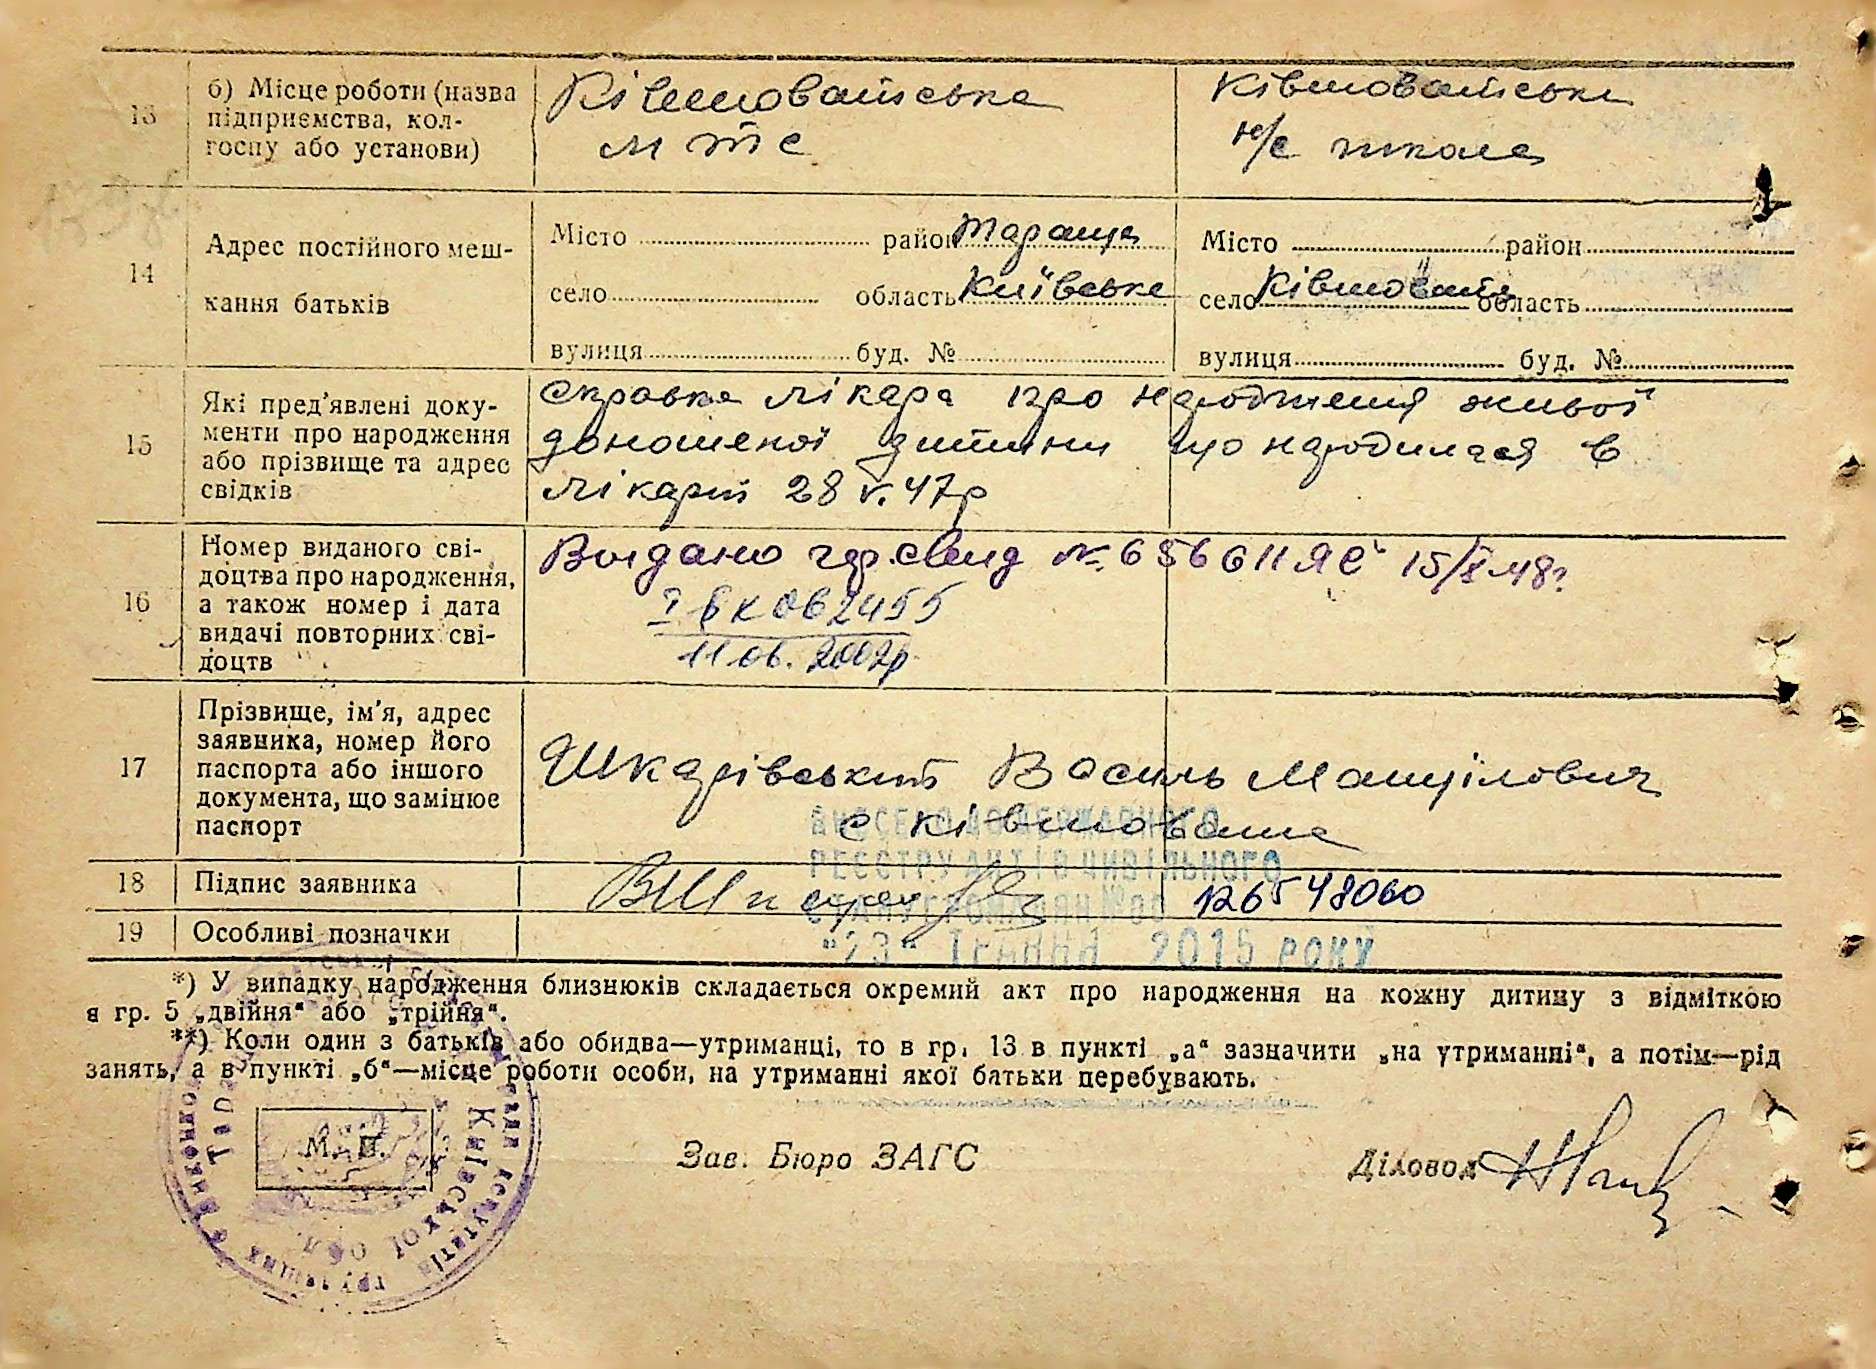 13
б) Місце роботи (назва
підприємства, кол-
госпу або установи)
Ківшоватська
МТС
Ківшоватська
н/с школа
14
Адрес постійного меш-
кання батьків
Місто район Тараща
село область Київська
вулиця буд. №
Місто район
село Ківшовата область
вулиця буд. №
15
Які пред'явлені доку-
менти про народження
або прізвище та адрес
свідків
Справка лікара про народження живої
доношеної дитини що народилася в
лікарні 28 V. 47р
16
Номер виданого сві-
доцтва про народження,
а також номер і дата
видачі повторних сві-
доцтв
Видано гер. свид № 656611 ЯЄ 15/X 48г.
I БК 062455
11 06. 2002р.
17
Прізвище, ім'я, адрес
заявника, номер його
паспорта або іншого
документа, що замінює
паспорт
Шкарівський Василь
с Ківшовата
18
Підпис заявника
12654 8060
19
Особливі позначки
ВНЕСЕНО ДО ДЕРЖАВНОГО
РЕЄСТРУ АКТІВ ЦИВІЛЬНОГО
СТАНУ ГРОМАДЯН №00
"23" ТРАВНЯ 2015 РОКУ
*) У випадку народження близнюків складається окремий акт про народження на кожну дитину з відміткою
в гр. 5 „двійня“ або „трійня“.
**) Коли один з батьків або обидва—утриманці, то в гр. 13 в пункті „а“ зазначити „на утриманні“, а потім—рід
занять, а в пункті „б“—місце роботи особи, на утриманні якої батьки перебувають.
М. П.
Зав. Бюро ЗАГС
Діловод
Київської обл.
депутатів трудящих